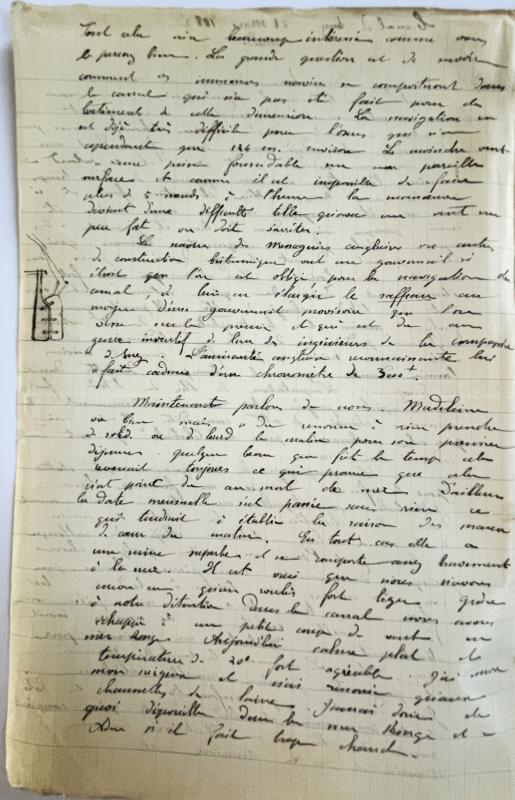 Canal de Suez 28 mars 188
Tout cela m'a beaucoup intéressé comme vous
le pensez bien. La grande question est de savoir
comment ces immenses navires se comporteront dans
le canal qui n'a pas été fait pour des
bâtiments de cette dimension. La navigation en
est déjà très difficile pour l'Oxus qui n'a
cependant que 124 m. environ. Le moindre vent
a une prise formidable sur une pareille
surface et comme il est impossible de faire
plus de 5 nœuds à l'heure la manœuvre
devient d'une difficulté telle qu'avec un vent un
peu fort on doit s'arrêter.
Les navires des messageries anglaises ou autres
de construction britannique ont un gouvernail si
étroit que l'on est obligé pour la navigation du
canal, de leur en élargir le saffran au
moyen d'un gouvernail provisoire que l'on
visse sur le premier et qui est du au
génie inventif de l'un des ingénieurs de la compagnie
de Suez. L'amirauté anglaise reconnaissante lui
a fait cadeau d'un chronomètre de 3000 f.
Maintenant parlons de nous. Madeleine
va bien mais a du renoncer à rien prendre
de solide ou de lourd le matin pour son premier
déjeuner. Quelque beau que fût le temps cela
revenait toujours ce qui prouve que cela
n'était point du au mal de mer. D'ailleurs
la date mensuelle s'est passée sans rien ce
qui tendrait à établir la raison des maux
de cœur du matin. En tout cas elle a
une mine superbe et se comporte assez bravement
à la mer. Il est vrai que nous n'avons
encore eu qu'un roulis fort léger grâce
à notre station dans le canal nous avons
échappé à un petit coup de vent en
mer Rouge. Aujourd'hui calme plat et
température de 20° fort agréable. J'ai mon
mon et vais renoncer qu'aux
chaussettes de laine. Jamais
quoi dans la mer Rouge et à
Aden s'il fait trop chaud.